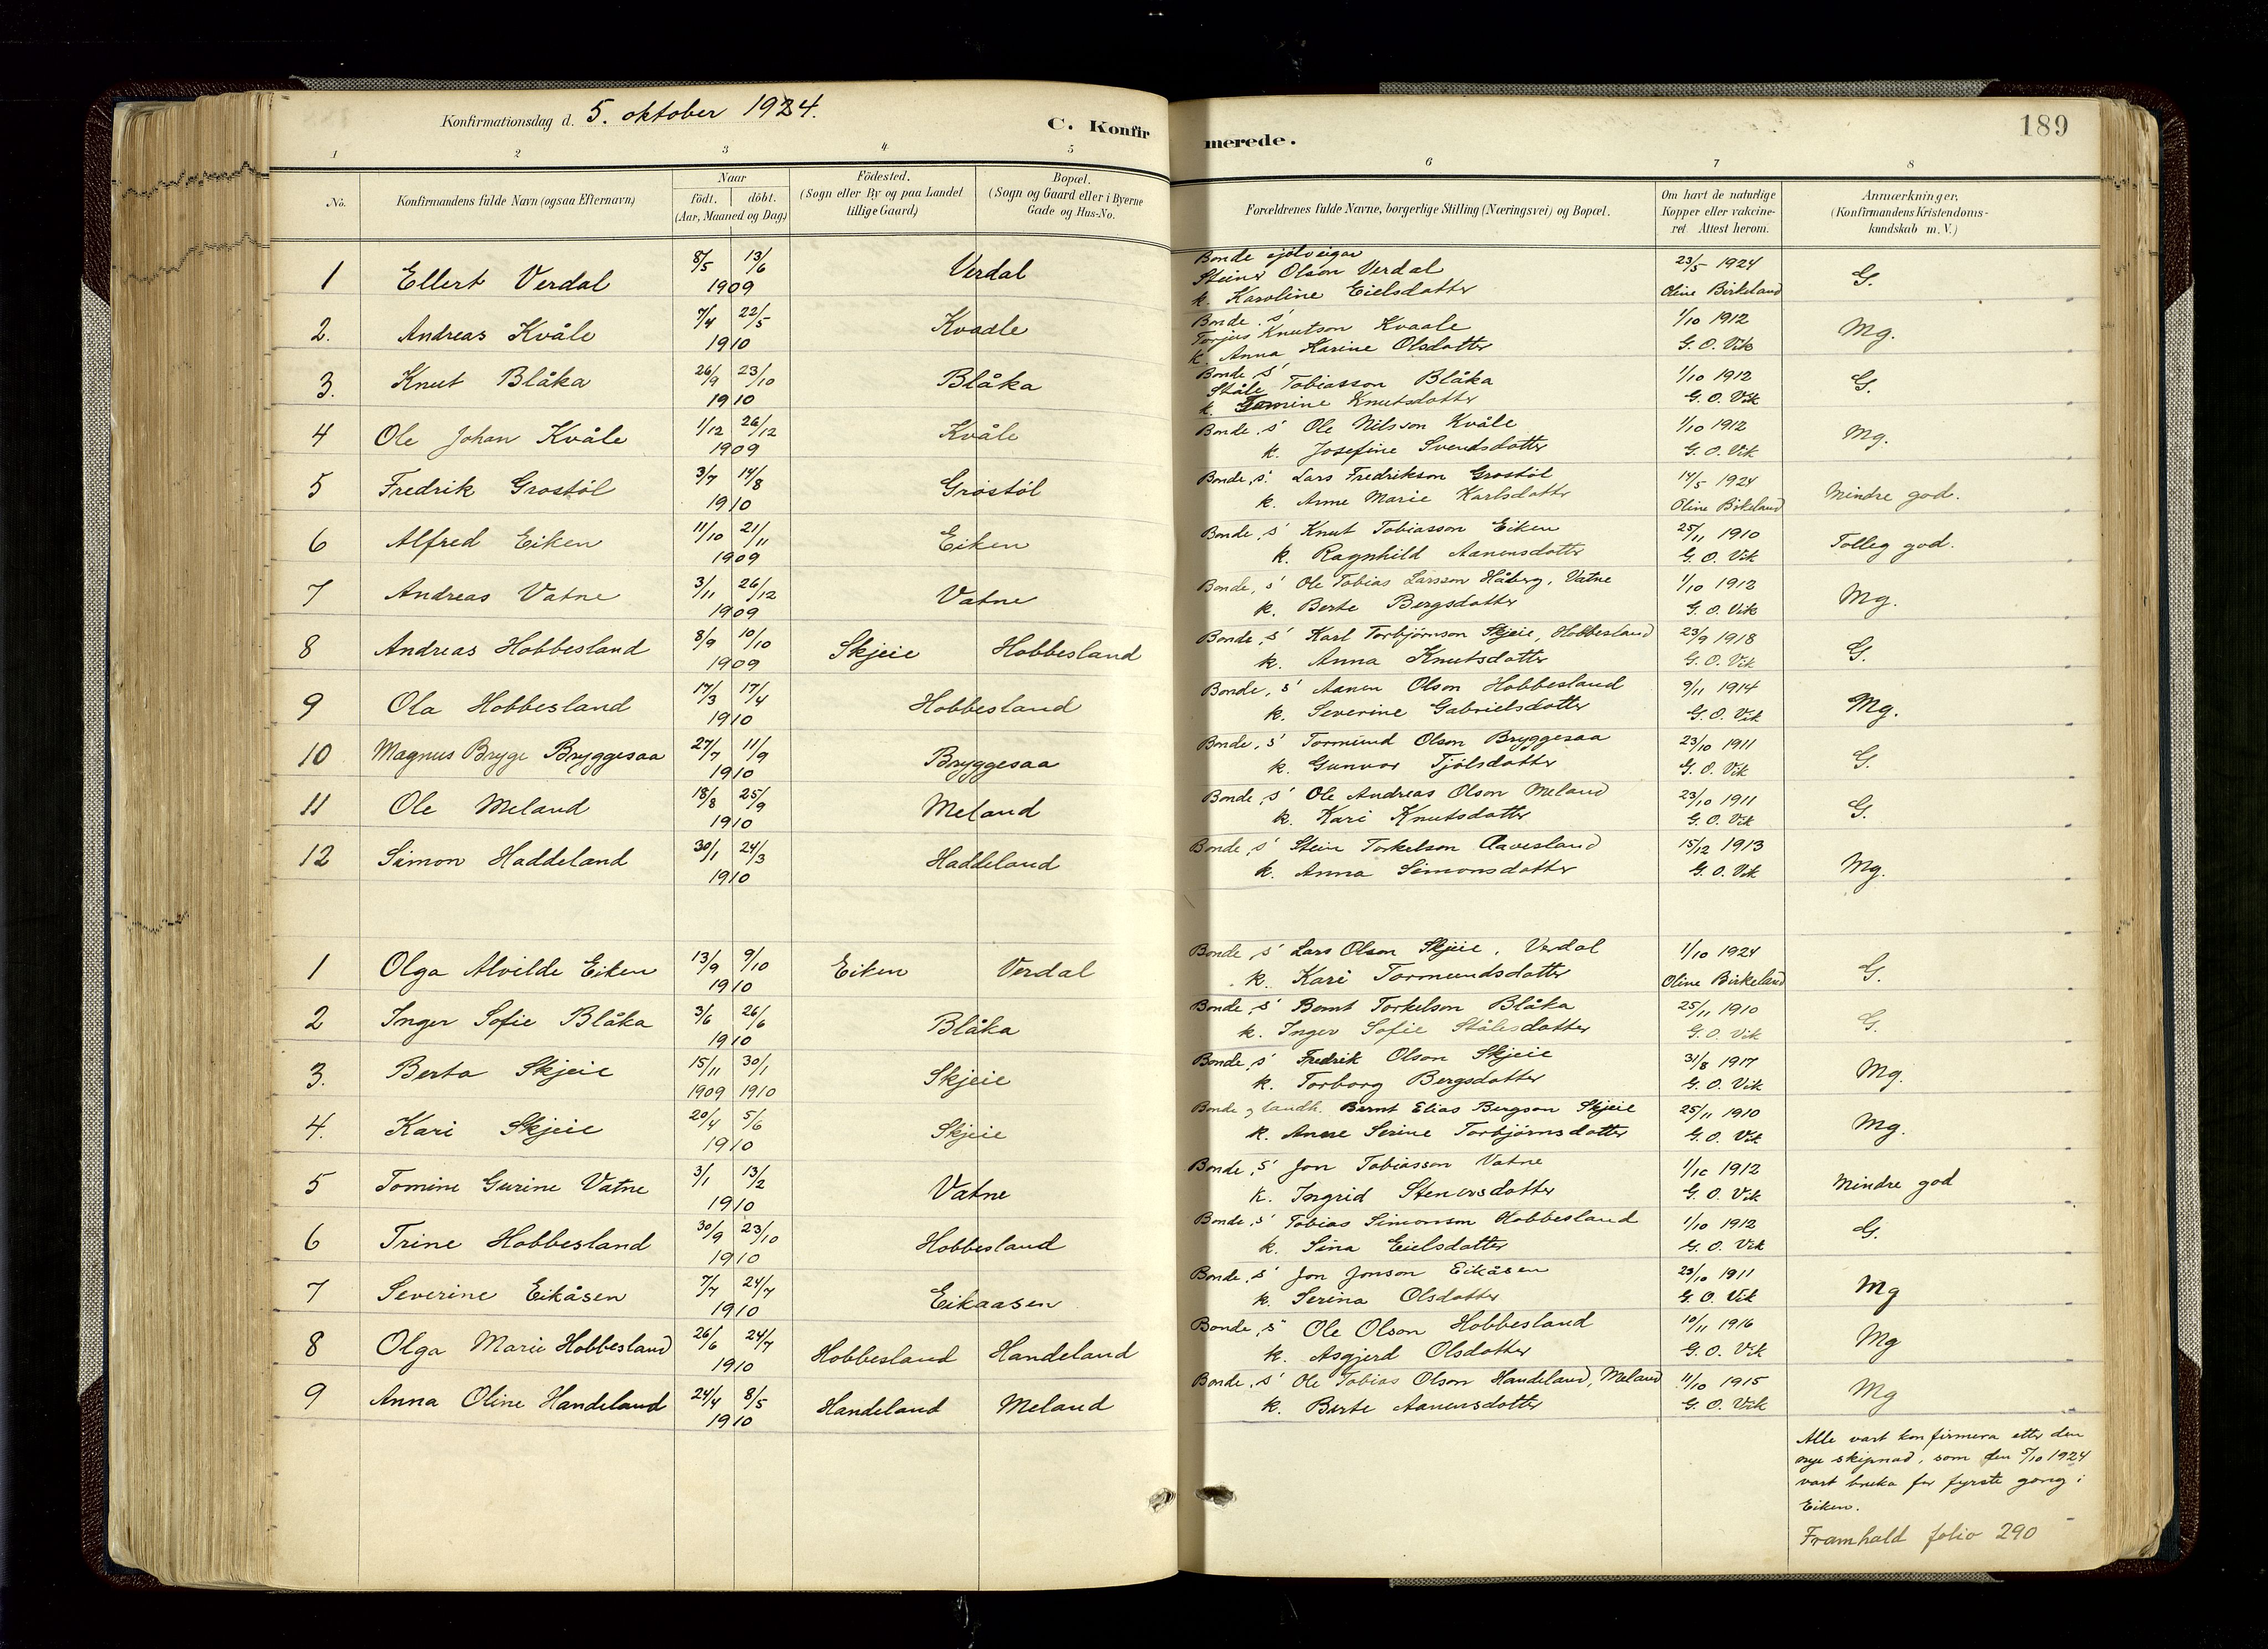 Konfirmationsdag d. 5. oktober 1924.
C. Konfirmerede.
189
1 2 3 4 5 6 7 8
No.
Konfirmandens fulde Navn (ogsaa Efternavn)
Naar
födt. döbt.
(Aar, Maaned og Dag)
Födested.
(Sogn eller By og paa Landet
tillige Gaard)
Bopæl.
(Sogn og Gaard eller i Byerne
Gade og Hus-No.
Forældrenes fulde Navne, borgerlige Stilling (Næringsvei) og Bopæl.
Om havt de naturlige
Kopper eller vakcine-
ret. Attest herom.
Anmærkninger.
(Konfirmandens Kristendoms-
kundskab m. V.)
1 Ellert Verdal 8/5 13/6 1909 Verdal
Bonde sjølveigar
Steiner Olson Verdal
k. Karoline Eielsdotter
23/5 1924
Oline Birkeland
G.
2. Andreas Kvåle 7/4 22/5 1910 Kvaale
Bonde, s'
Torjus Knutson Kvaale
k. Anna Karine Olsdotter
1/10 1912
G. O. Vik
Mg.
3. Knut Blåka 26/9 23/10 1910 Blåka
Bonde s'
Ståle Tobiasson Blåka
k. Tomine Knutsdotter
1/10 1912
G. O. Vik
G.
4 Ole Johan Kvåle 1/12 26/12 1909 Kvåle
Bonde, s' Ole Nilsson Kvåle
k. Josefine Svendsdotter
1/10 1912
G. O. Vik
Mg.
5 Fredrik Grostöl 3/7 14/8 1910 Gröstöl
Bonde, s' Lars Fredrikson Grostöl
k. Anne Marie Karlsdotter
14/5 1924
Oline Birkeland
Mindre god.
6 Alfred Eiken 11/10 21/11 1909 Eiken
Bonde, s' Knut Tobiasson Eiken
k. Ragnhild Aanensdotter
25/11 1910
G. O. Vik
Tolleg god.
7 Andreas Vatne 3/11 26/12 1909 Vatne
Bonde, s' Ole Tobias Larsson Håberg, Vatne
k. Berte Bergsdotter
1/10 1912
G. O. Vik
Mg.
8 Andreas Hobbesland 8/9 10/10 1909 Skjeie Hobbesland
Bonde, s' Karl Torbjørnson Skjeie, Hobbesland
k. Anna Knutsdotter
23/9 1918
G. O. Vik
G.
9 Ola Hobbesland 17/3 17/4 1910 Hobbesland
Bonde, s' Aanen Olson Hobbesland
k. Severine Gabrielsdotter
9/11 1914
G. O. Vik
Mg.
10 Magnus Bryge Bryggesaa 27/7 11/9 1910 Bryggesaa
Bonde, s' Tormund Olson Bryggesaa
k. Gunvor Tjølsdotter
23/10 1911
G. O. Vik
G.
11 Ole Meland 18/8 25/9 1910 Meland
Bonde, s' Ole Andreas Olson Meland
k. Kari Knutsdotter
23/10 1911
G. O. Vik
G.
12 Simon Haddeland 30/1 24/3 1910 Haddeland
Bonde, s' Stein Torkelson Aavesland
k. Anna Simonsdotter
15/12 1913
G. O. Vik
Mg.
1 Olga Alvilde Eiken 13/9 9/10 1910 Eiken Verdal
Bonde, s' Lars Olson Skjeie, Verdal
k. Kari Tormundsdotter
1/10 1924
Oline Birkeland
G.
2 Inger Sofie Blåka 3/6 26/6 1910 Blåka
Bonde, s' Bernt Torkelson Blåka
k. Inger Sofie Stålesdotter
25/11 1910
G. O. Vik
G.
3. Berta Skjeie 15/11 1909 30/1 1910 Skjeie
Bonde, s' Fredrik Olson Skjeie
k. Torborg Bergsdotter
31/8 1917
G. O. Vik
Mg.
4. Kari Skjeie 20/4 5/6 1910 Skjeie
Bonde, landh. Bernt Elias Bergson Skjeie
k. Anne Serine Torbjørnsdotter
25/11 1910
G. O. Vik
Mg.
5 Tomine Gurine Vatne 3/1 13/2 1910 Vatne
Bonde, s' Jon Tobiasson Vatne
k. Ingrid Stenersdotter
1/10 1912
G. O. Vik
Mindre god
6 Trine Hobbesland 30/9 23/10 1910 Hobbesland
Bonde, s' Tobias Simonson Hobbesland
k. Sina Eielsdotter
1/10 1912
G. O. Vik
G.
7 Severine Eikåsen 7/7 24/7 1910 Eikaasen
Bonde, s' Jon Jonson Eikåsen
k. Serina Olsdotter
23/10 1911
G. O. Vik
Mg
8 Olga Marie Hobbesland 26/6 24/7 1910 Hobbesland Handeland
Bonde, s' Ole Olson Hobbesland
k. Asgjerd Olsdotter
10/11 1916
G. O. Vik
Mg
9 Anna Oline Handeland 24/4 8/5 1910 Handeland Meland
Bonde, s' Ole Tobias Olson Handeland, Meland
k. Berte Aanensdotter
11/10 1915
G. O. Vik
Mg
Alle vart konfirmera etter den
nye skipnad, som den 5/10 1924
vart bruka for fyrste gong i
Eiken.
Framhald folio 290